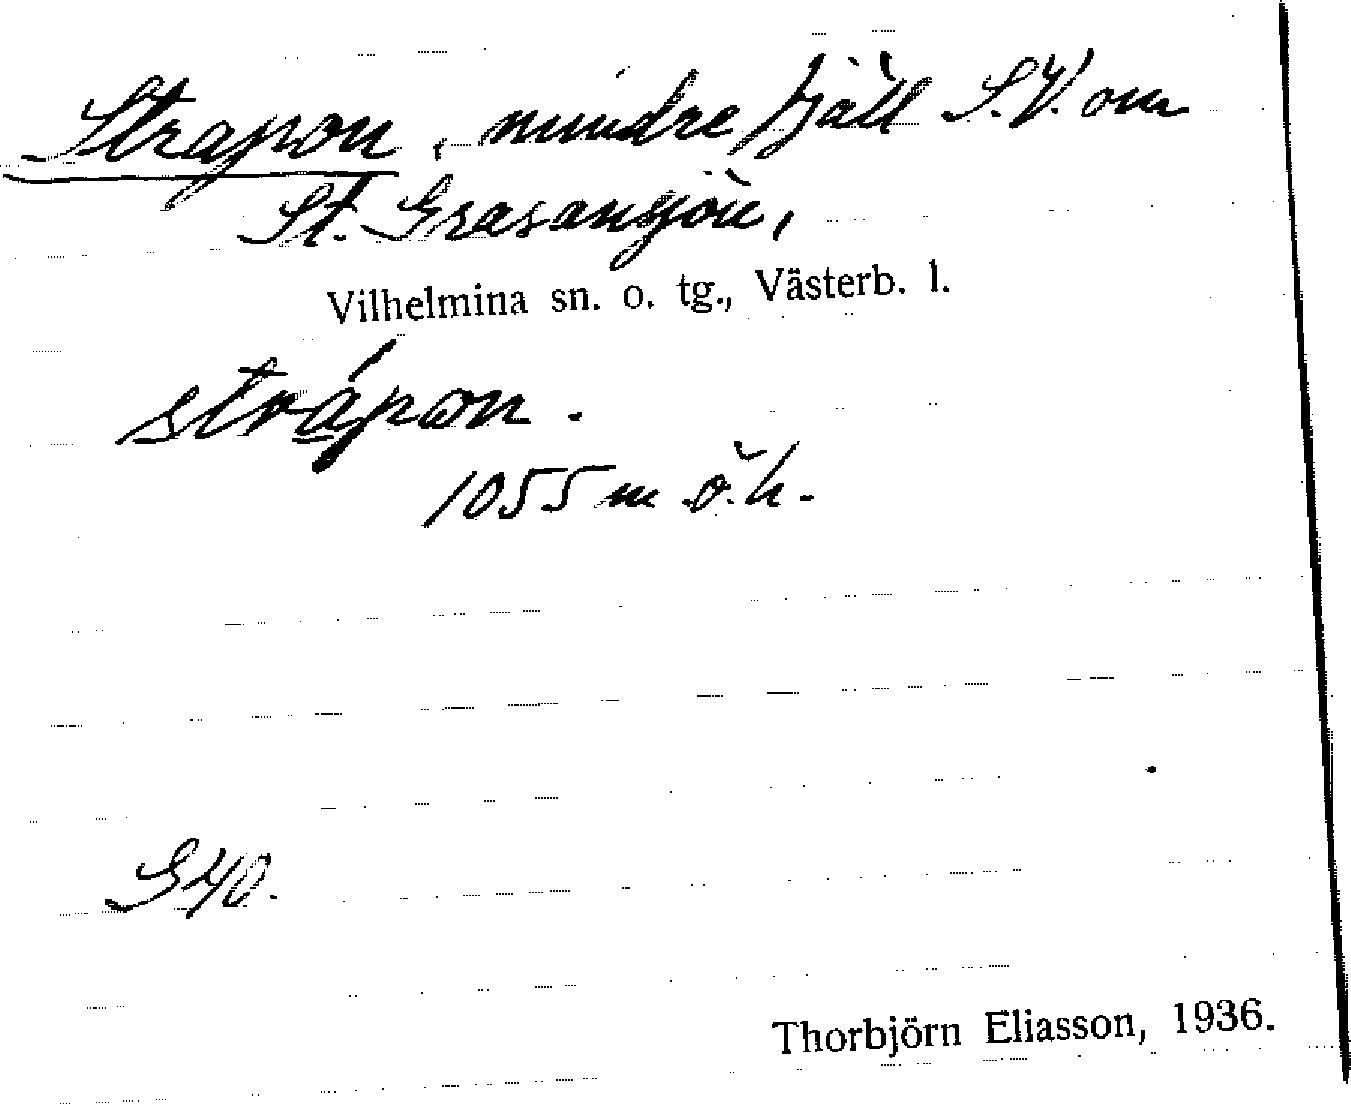 Strapon, mindre fjäll S.V. om
St. Grasansjön,
Vilhelmina sn. o. tg., Västerb. l.
strápon.
1055 m ö.h.
G40.
Thorbjörn Eliasson, 1936.